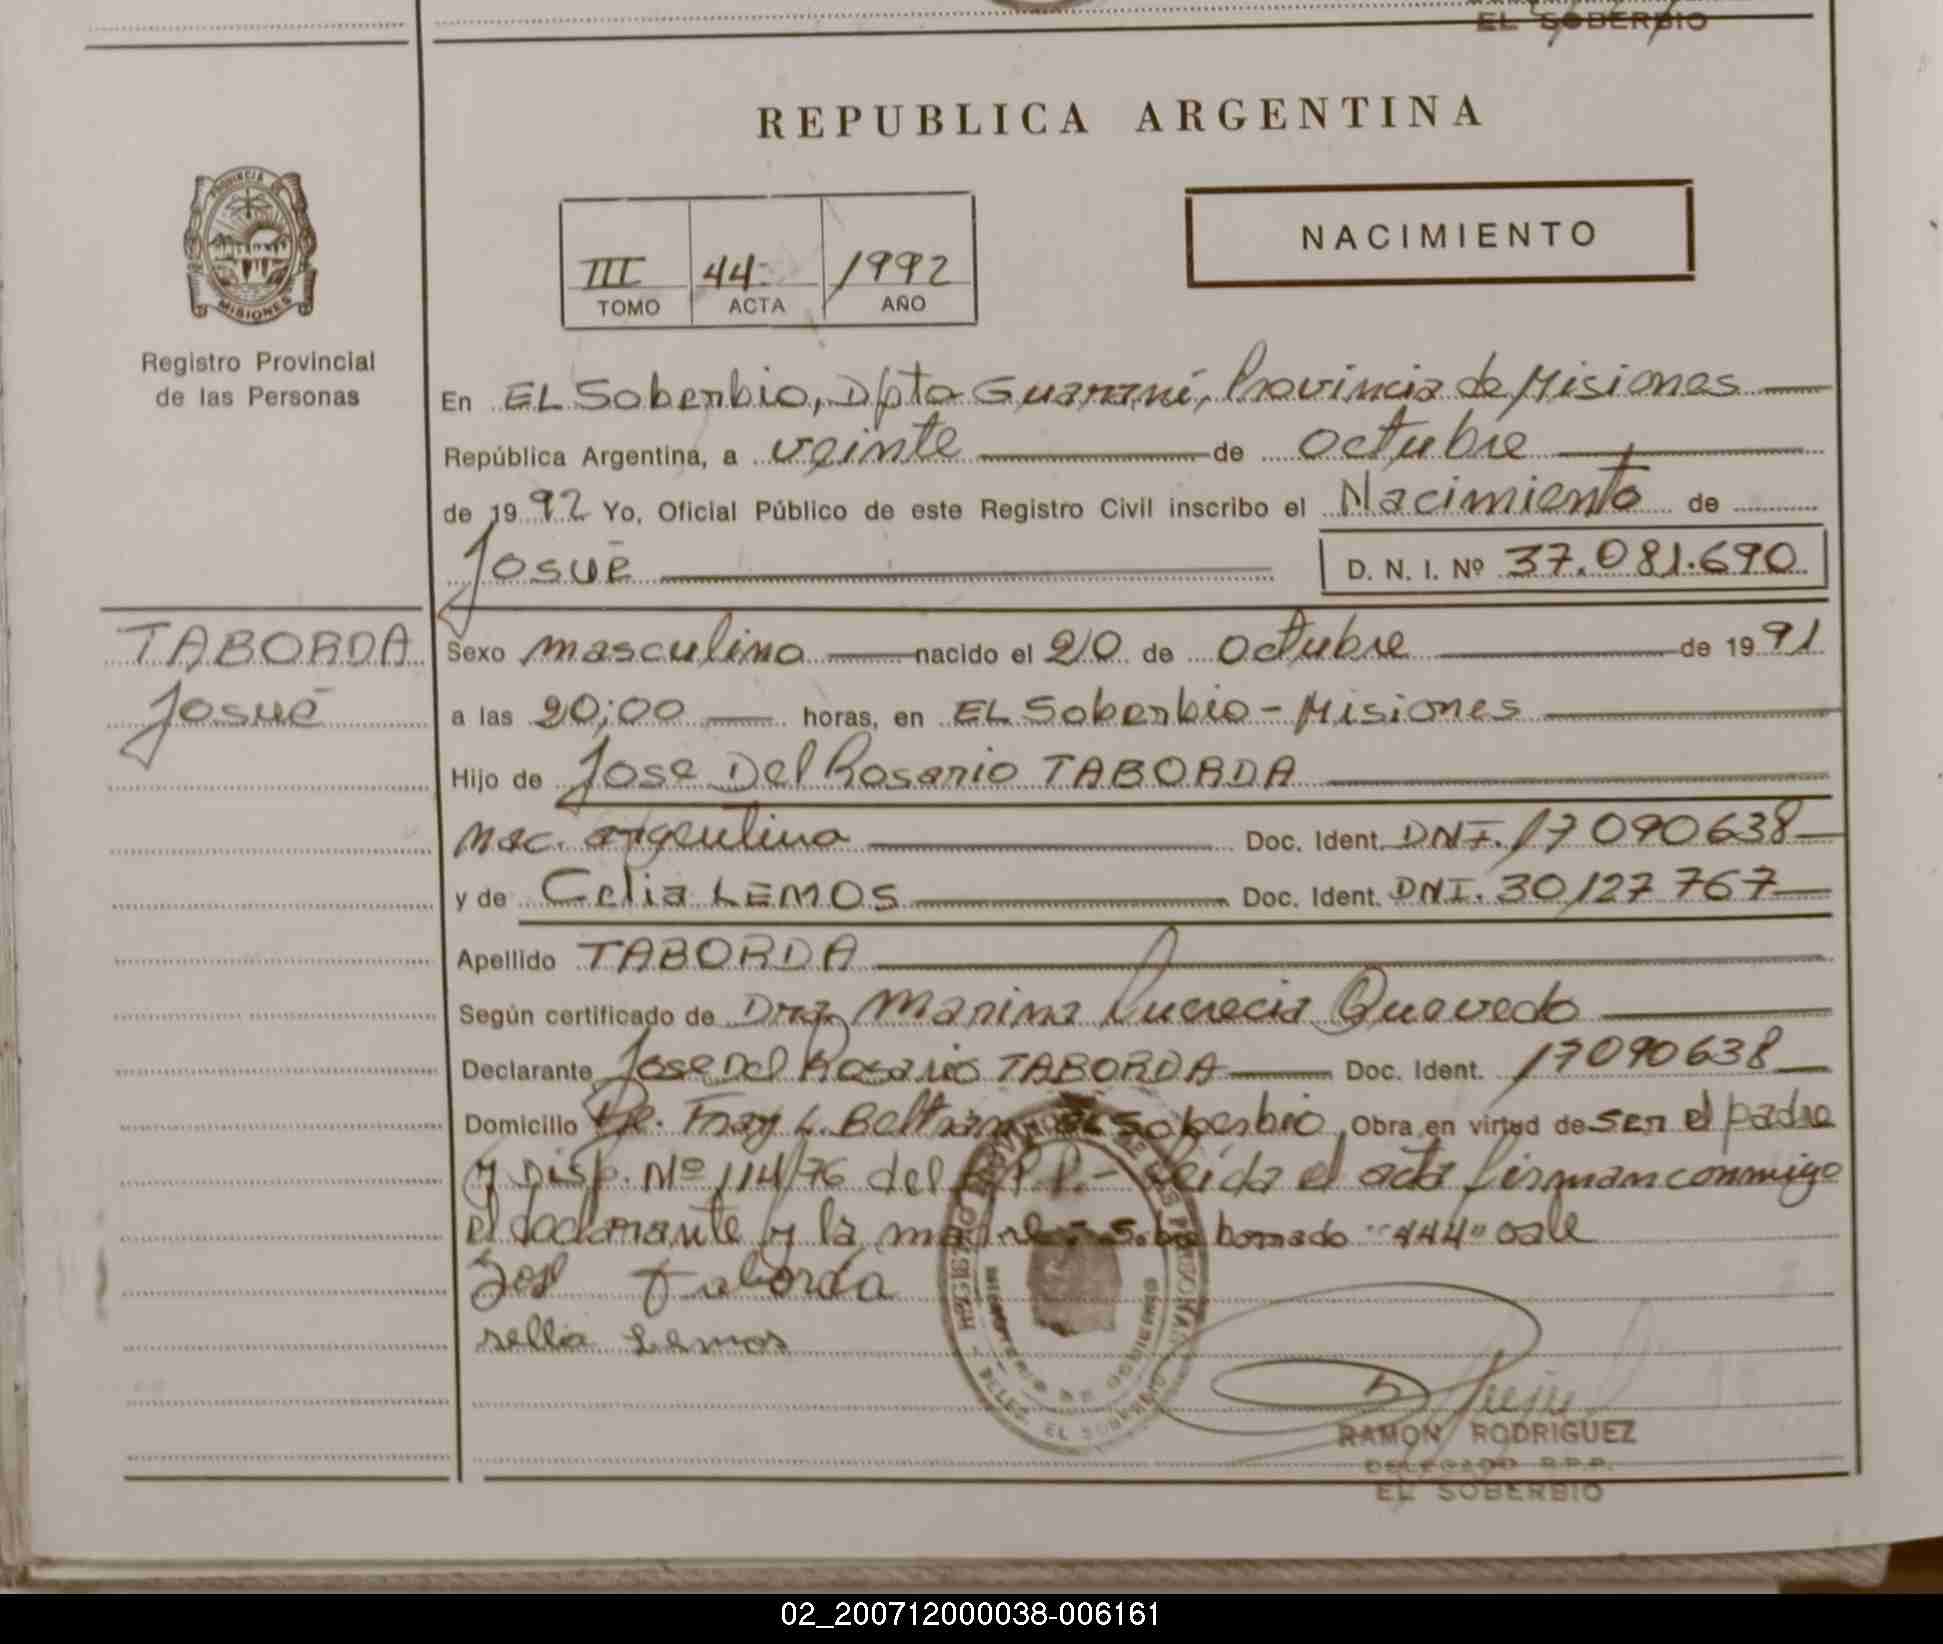 EL SOBERBIO
REPUBLICA ARGENTINA
PROVINCIA DE
MISIONES
Registro Provincial
de las Personas
NACIMIENTO
III 44 1992
TOMO ACTA AÑO
En EL Soberbio, Dpto Guaraní, Provincia de Misiones
República Argentina, a veinte de octubre
de 1992 Yo, Oficial Público de este Registro Civil inscribo el Nacimiento de
Josué D. N. I. Nº 37.081.690
TABORDA
Josué
Sexo masculino nacido el 20 de octubre de 1991
a las 20;00 horas, en EL Soberbio - Misiones
Hijo de Jose Del Rosario TABORDA
nac. argentina Doc. Ident. DNI. 17090638
y de Celia LEMOS Doc. Ident. DNI. 30127767
Apellido TABORDA
Según certificado de Dra. Marina Lucrecia Quevedo
Declarante Jose Del Rosario TABORDA Doc. Ident. 17090638
Domicilio Fray L. Beltran EL Soberbio Obra en virtud de ser el padre
y Disp. Nº 114/76 del R.P.P.- Leida el acta firman conmigo
el declarante y la madre - S. borrado "44" vale
José Taborda
sellia Lemos
REGISTRO PROVINCIAL DE LAS PERSONAS
MINISTERIO DE GOBIERNO
DELEG. EL SOBERBIO
RAMON RODRIGUEZ
DELEGADO R.P.P.
EL SOBERBIO
02_200712000038-006161